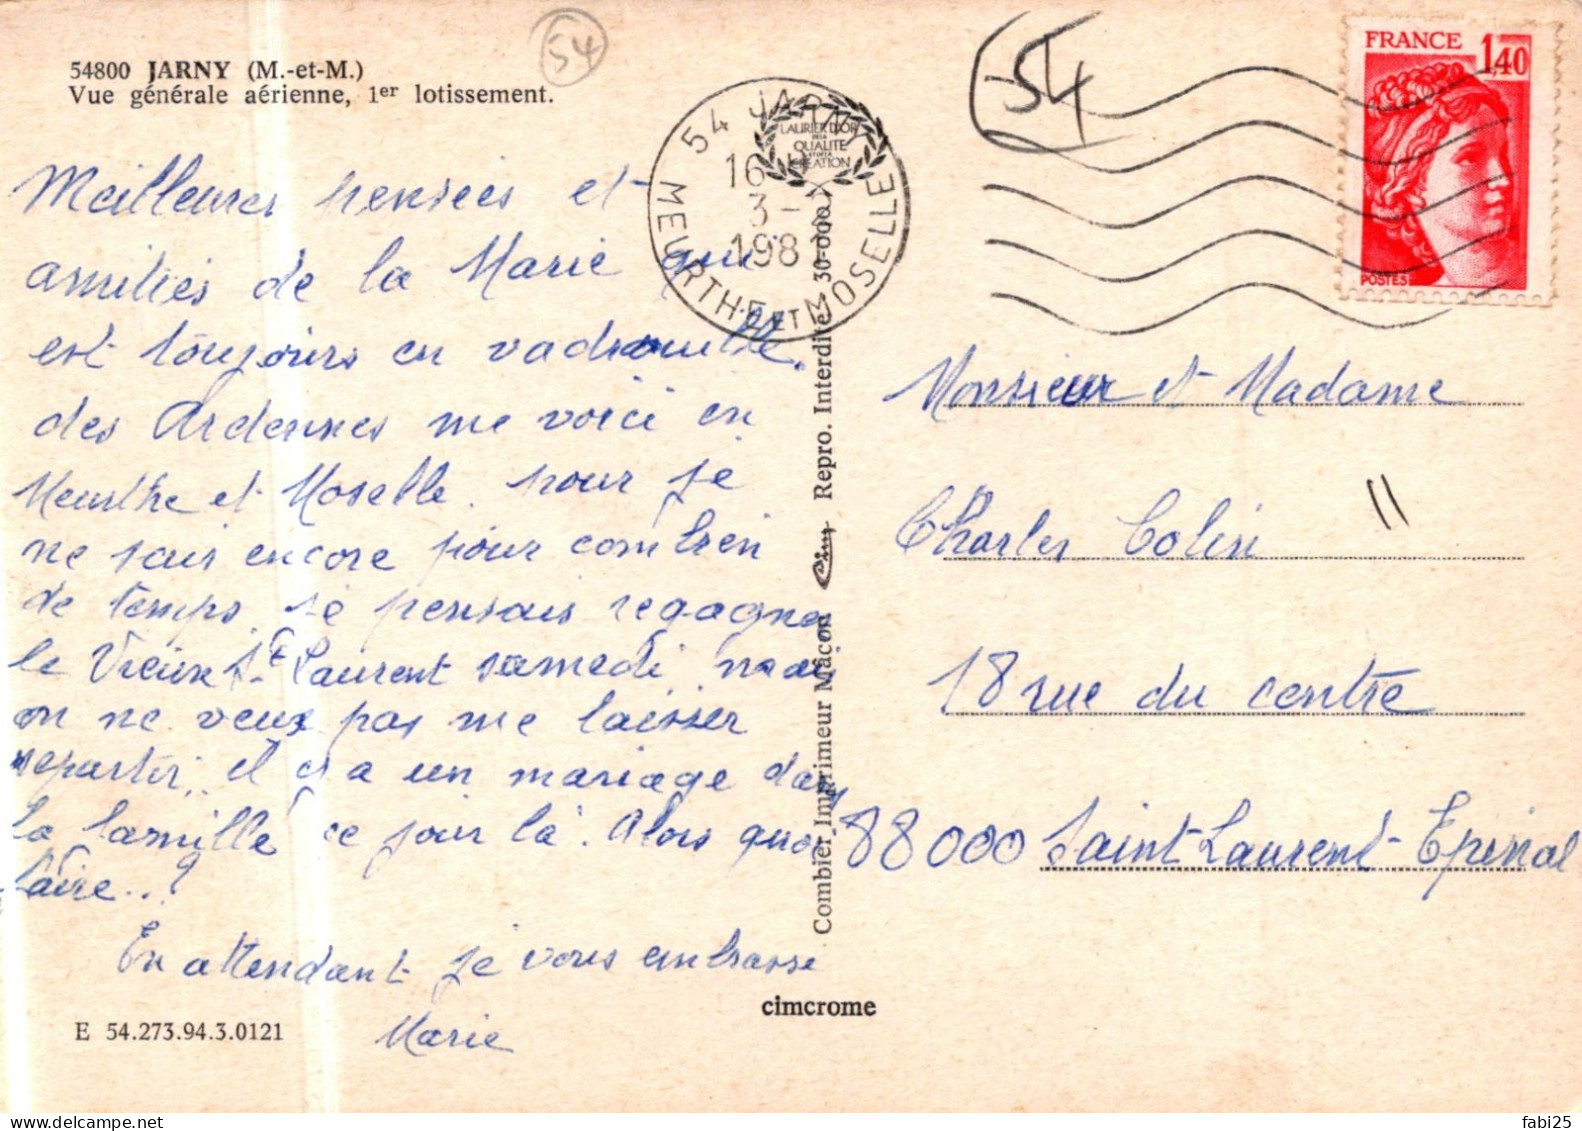 54
54800 JARNY (M.-et-M.)
Vue générale aérienne, 1er lotissement.
Meilleures pensées et
amitiés de la Marie qui
est toujours en vadrouille.
des Ardennes me voici en
Meurthe et Moselle. pour je
ne sais encore pour combien
de temps, je pensais regagner
le Vieux St Laurent samedi mais
on ne veux pas me laisser
repartir, il y a un mariage dans
la famille ce jour là. Alors quoi
faire..?
En attendant je vous embrasse
Marie
E 54.273.94.3.0121
54 JARNY
16 H
3-
1981
MEURTHE ET MOSELLE
LAURIER D'OR
DE LA
QUALITE
ET DE LA
CREATION
Combier Imprimeur Mâcon Cim Repro. Interdite 30-000
cimcrome
54
FRANCE 1,40
POSTES
Monsieur et Madame
Charles Colin
11
18 rue du centre
88000 Saint-Laurent-Epinal
fabi25